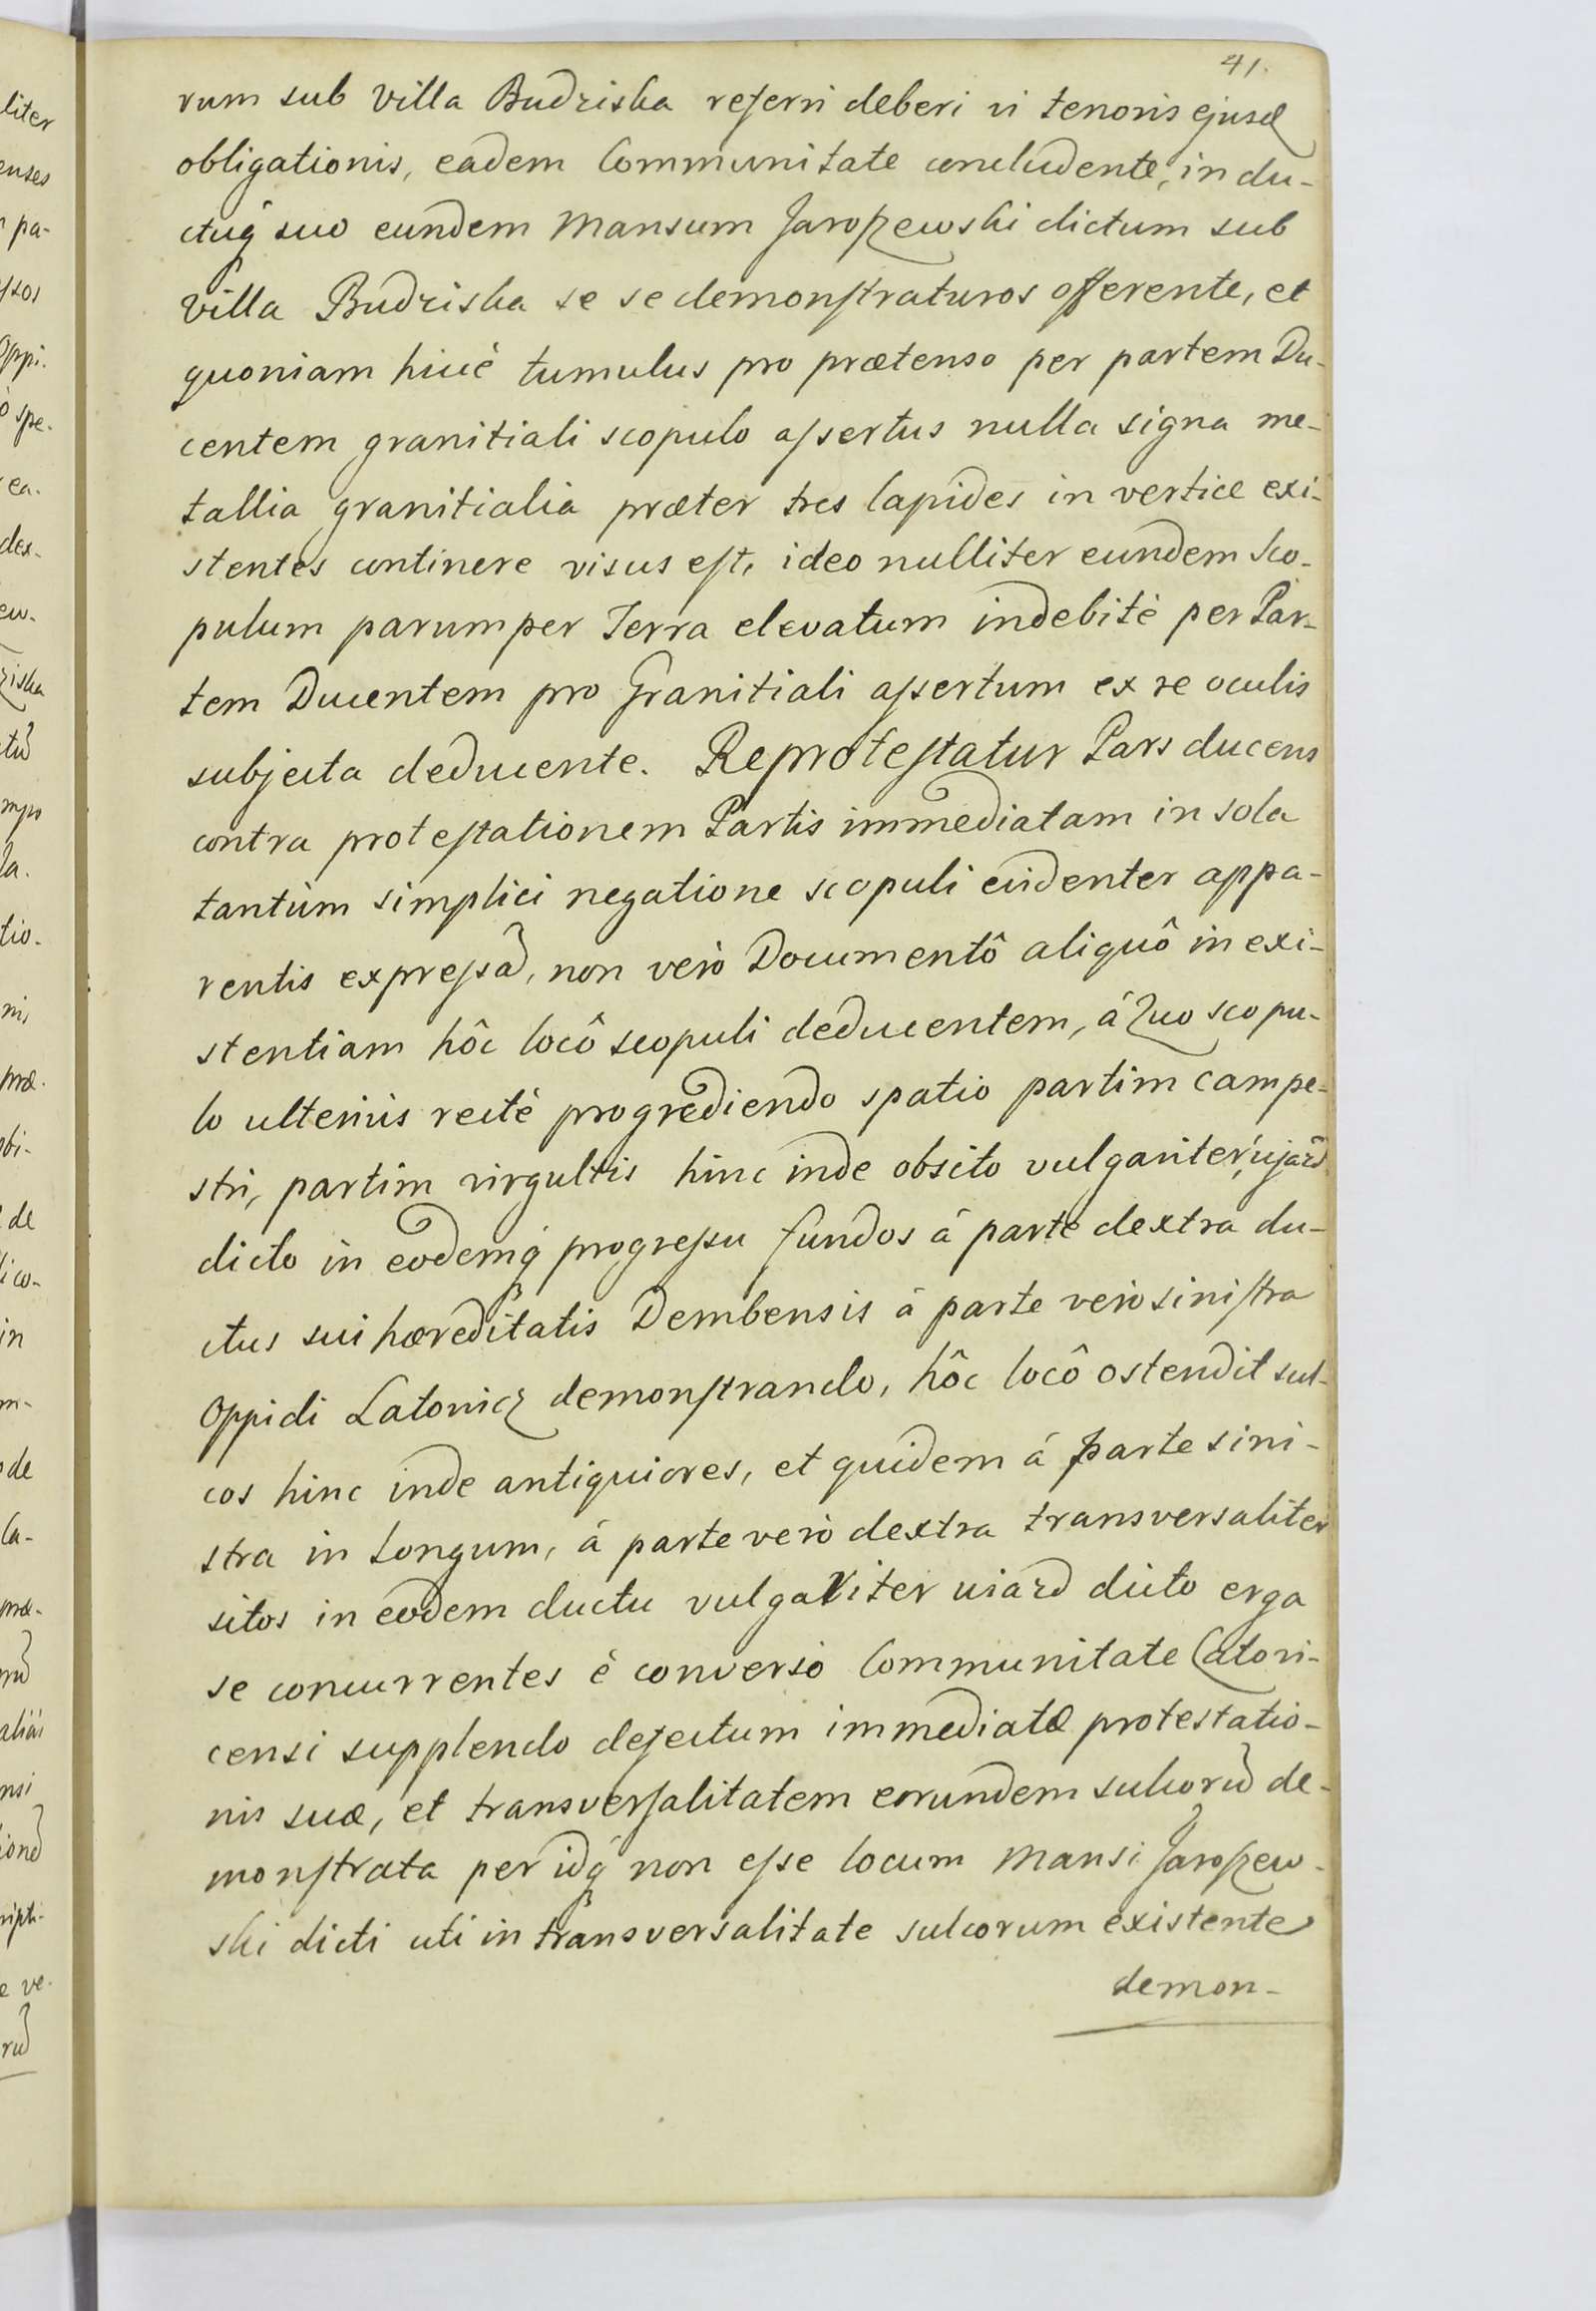 41.
rum sub Villa Budziska referri deberi vi tenoris ejusd
obligationis, eadem Communitate concludente, in du-
ctuq́ suo eundem Mansum Jaroszewski dictum sub
Villa Budziska se se demonstraturos offerente, et
quoniam hicce tumulus pro prætenso per partem Du-
centem granitiali scopulo assertus nulla signa me-
tallia granitialia præter tres lapides in vertice exi-
stentes continere visus est, ideo nulliter eundem Sco-
pulum parumper Terra elevatum indebitè per Par-
tem Ducentem pro Granitiali assertum ex re oculis
subjecta deducente. Reprotestatur Pars ducens
contra protestationem Partis immediatam in sola
tantùm simplici negatione scopuli evidenter appa-
rentis expressã, non verò Documentô aliquô inexi-
stentiam hôc locô scopuli deducentem, á Quo scopu-
lo ulterius rectè progrediendo spatio partim campe-
stri, partim virgultis hinc inde obsito vulgariter, ujazd
dicto in eodemq́ progressu fundos á parte dextra du-
ctus sui hæreditatis Dembensis á parte verò sinistra
Oppidi Latowicz demonstrando, hôc locô ostendit sul-
cos hinc inde antiquiores, et quidem á parte sini-
stra in Longum, á parte verò dextra transversaliter
sitos in eodem ductu vulgariter uiazd dicto erga
se concurrentes è converso Communitate Latovi-
censi supplendo defectum immediatæ protestatio-
nis suæ, et transversalitatem eorundem sulcorũ de-
monstrata per idq́ non esse locum Mansi Jaroszew-
ski dicti uti in transversalitate sulcorum existente
demon-